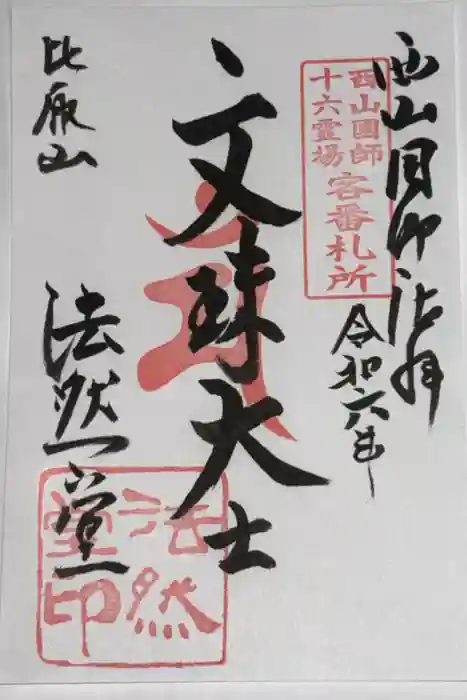 西山国師
西山國師
十六霊場
客番札所
令和六年
文殊大士
比叡山
法然堂
法然
堂印